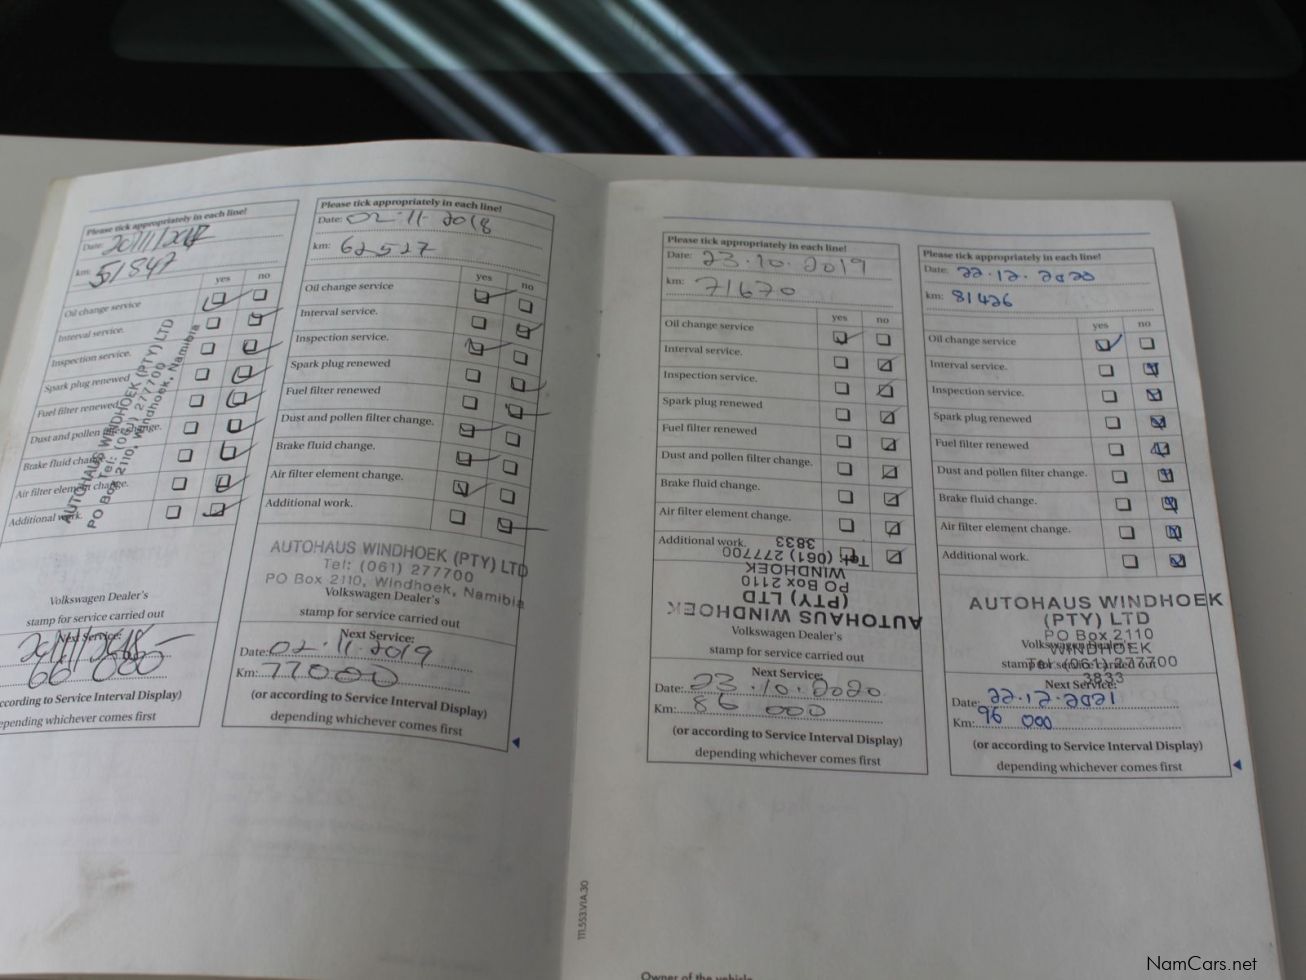 Please tick appropriately in each line!
Date: 20/11/2017
km: 51847
yes no
Oil change service
Interval service.
Inspection service.
Spark plug renewed
Fuel filter renewed
Dust and pollen filter change.
Brake fluid change.
Air filter element change.
Additional work.
AUTOHAUS WINDHOEK (PTY) LTD
Tel: (061) 277700
PO Box 2110, Windhoek, Namibia
Volkswagen Dealer's
stamp for service carried out
Next Service:
20/11/2018
66 000
ccording to Service Interval Display)
epending whichever comes first
Please tick appropriately in each line!
Date: 02.11.2018
km: 62527
yes no
Oil change service
Interval service.
Inspection service.
Spark plug renewed
Fuel filter renewed
Dust and pollen filter change.
Brake fluid change.
Air filter element change.
Additional work.
AUTOHAUS WINDHOEK (PTY) LTD
Tel: (061) 277700
PO Box 2110, Windhoek, Namibia
Volkswagen Dealer's
stamp for service carried out
Next Service:
Date: 02.11.2019
Km: 77000
(or according to Service Interval Display)
depending whichever comes first
Please tick appropriately in each line!
Date: 23.10.2019
km: 71670
yes no
Oil change service
Interval service.
Inspection service.
Spark plug renewed
Fuel filter renewed
Dust and pollen filter change.
Brake fluid change.
Air filter element change.
Additional work.
AUTOHAUS WINDHOEK
(PTY) LTD
PO Box 2110
WINDHOEK
Tel: (061) 277700
3833
Volkswagen Dealer's
stamp for service carried out
Next Service:
Date: 23.10.2020
Km: 86 000
(or according to Service Interval Display)
depending whichever comes first
Please tick appropriately in each line!
Date: 22.12.2020
km: 81426
yes no
Oil change service
Interval service.
Inspection service.
Spark plug renewed
Fuel filter renewed
Dust and pollen filter change.
Brake fluid change.
Air filter element change.
Additional work.
AUTOHAUS WINDHOEK
(PTY) LTD
PO Box 2110
WINDHOEK
Tel: (061) 277700
3833
Volkswagen Dealer's
stamp for service carried out
Next Service:
Date: 22.12.2021
Km: 96 000
(or according to Service Interval Display)
depending whichever comes first
111.553.V1A.30
Owner of the vehicle
NamCars.net